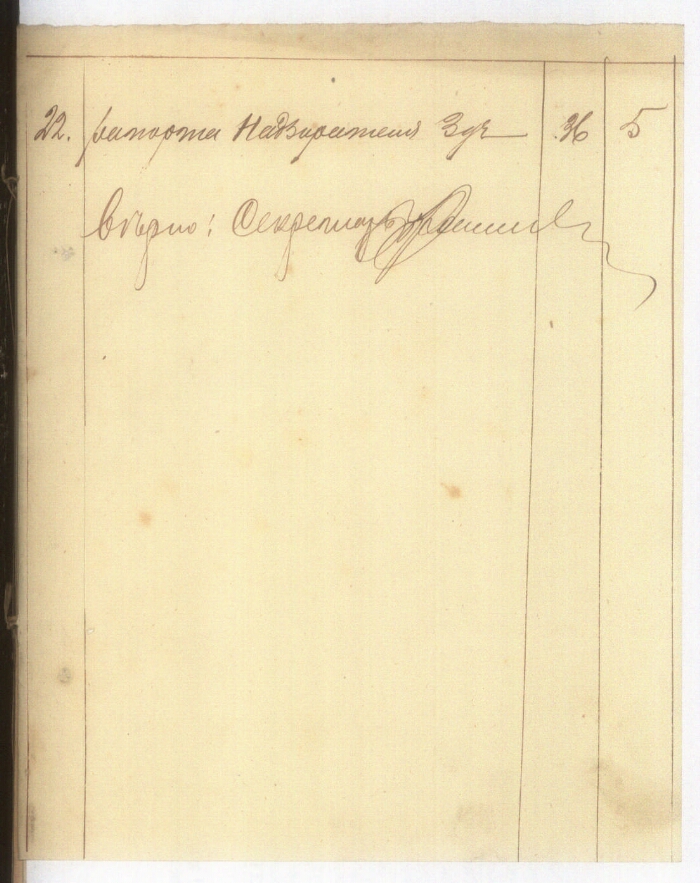 22. рапорта Надзирателя 36 5
Вѣрно: Секретарь